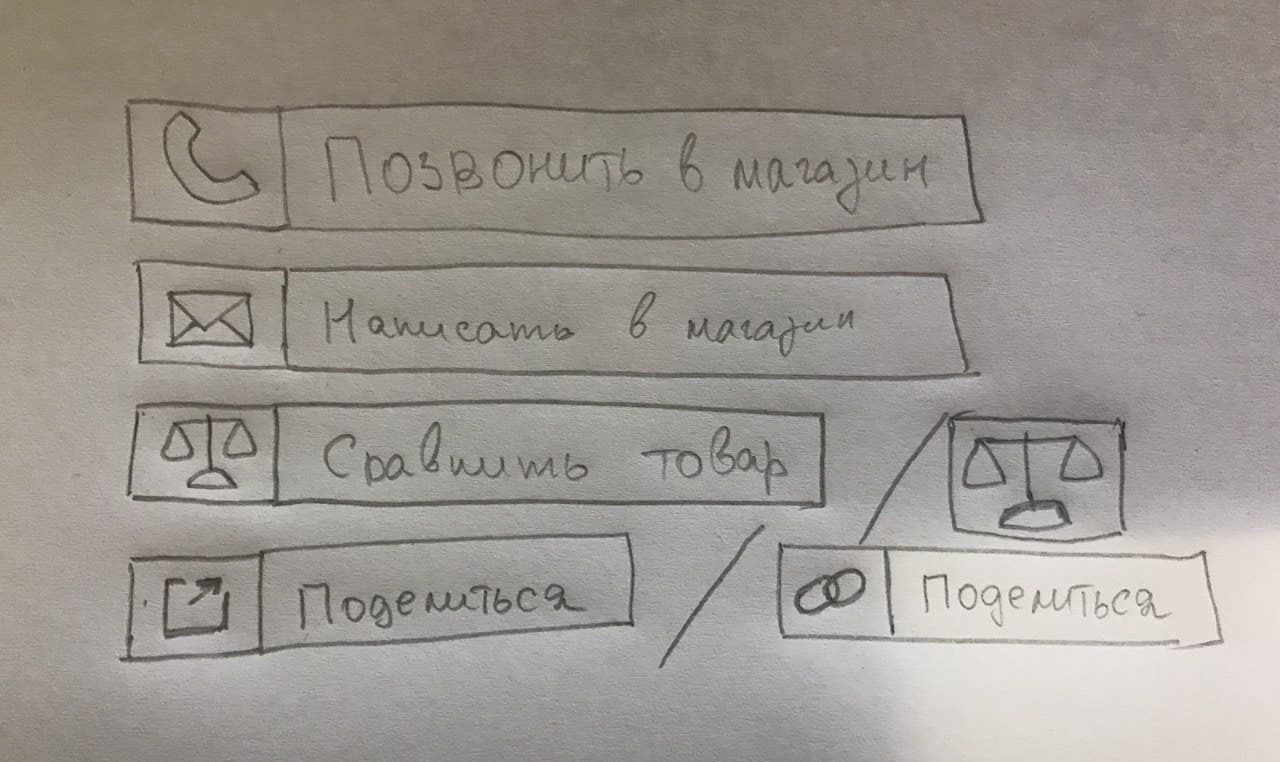 Позвонить в магазин
Написать в магазин
Сравнить товар
Поделиться
Поделиться